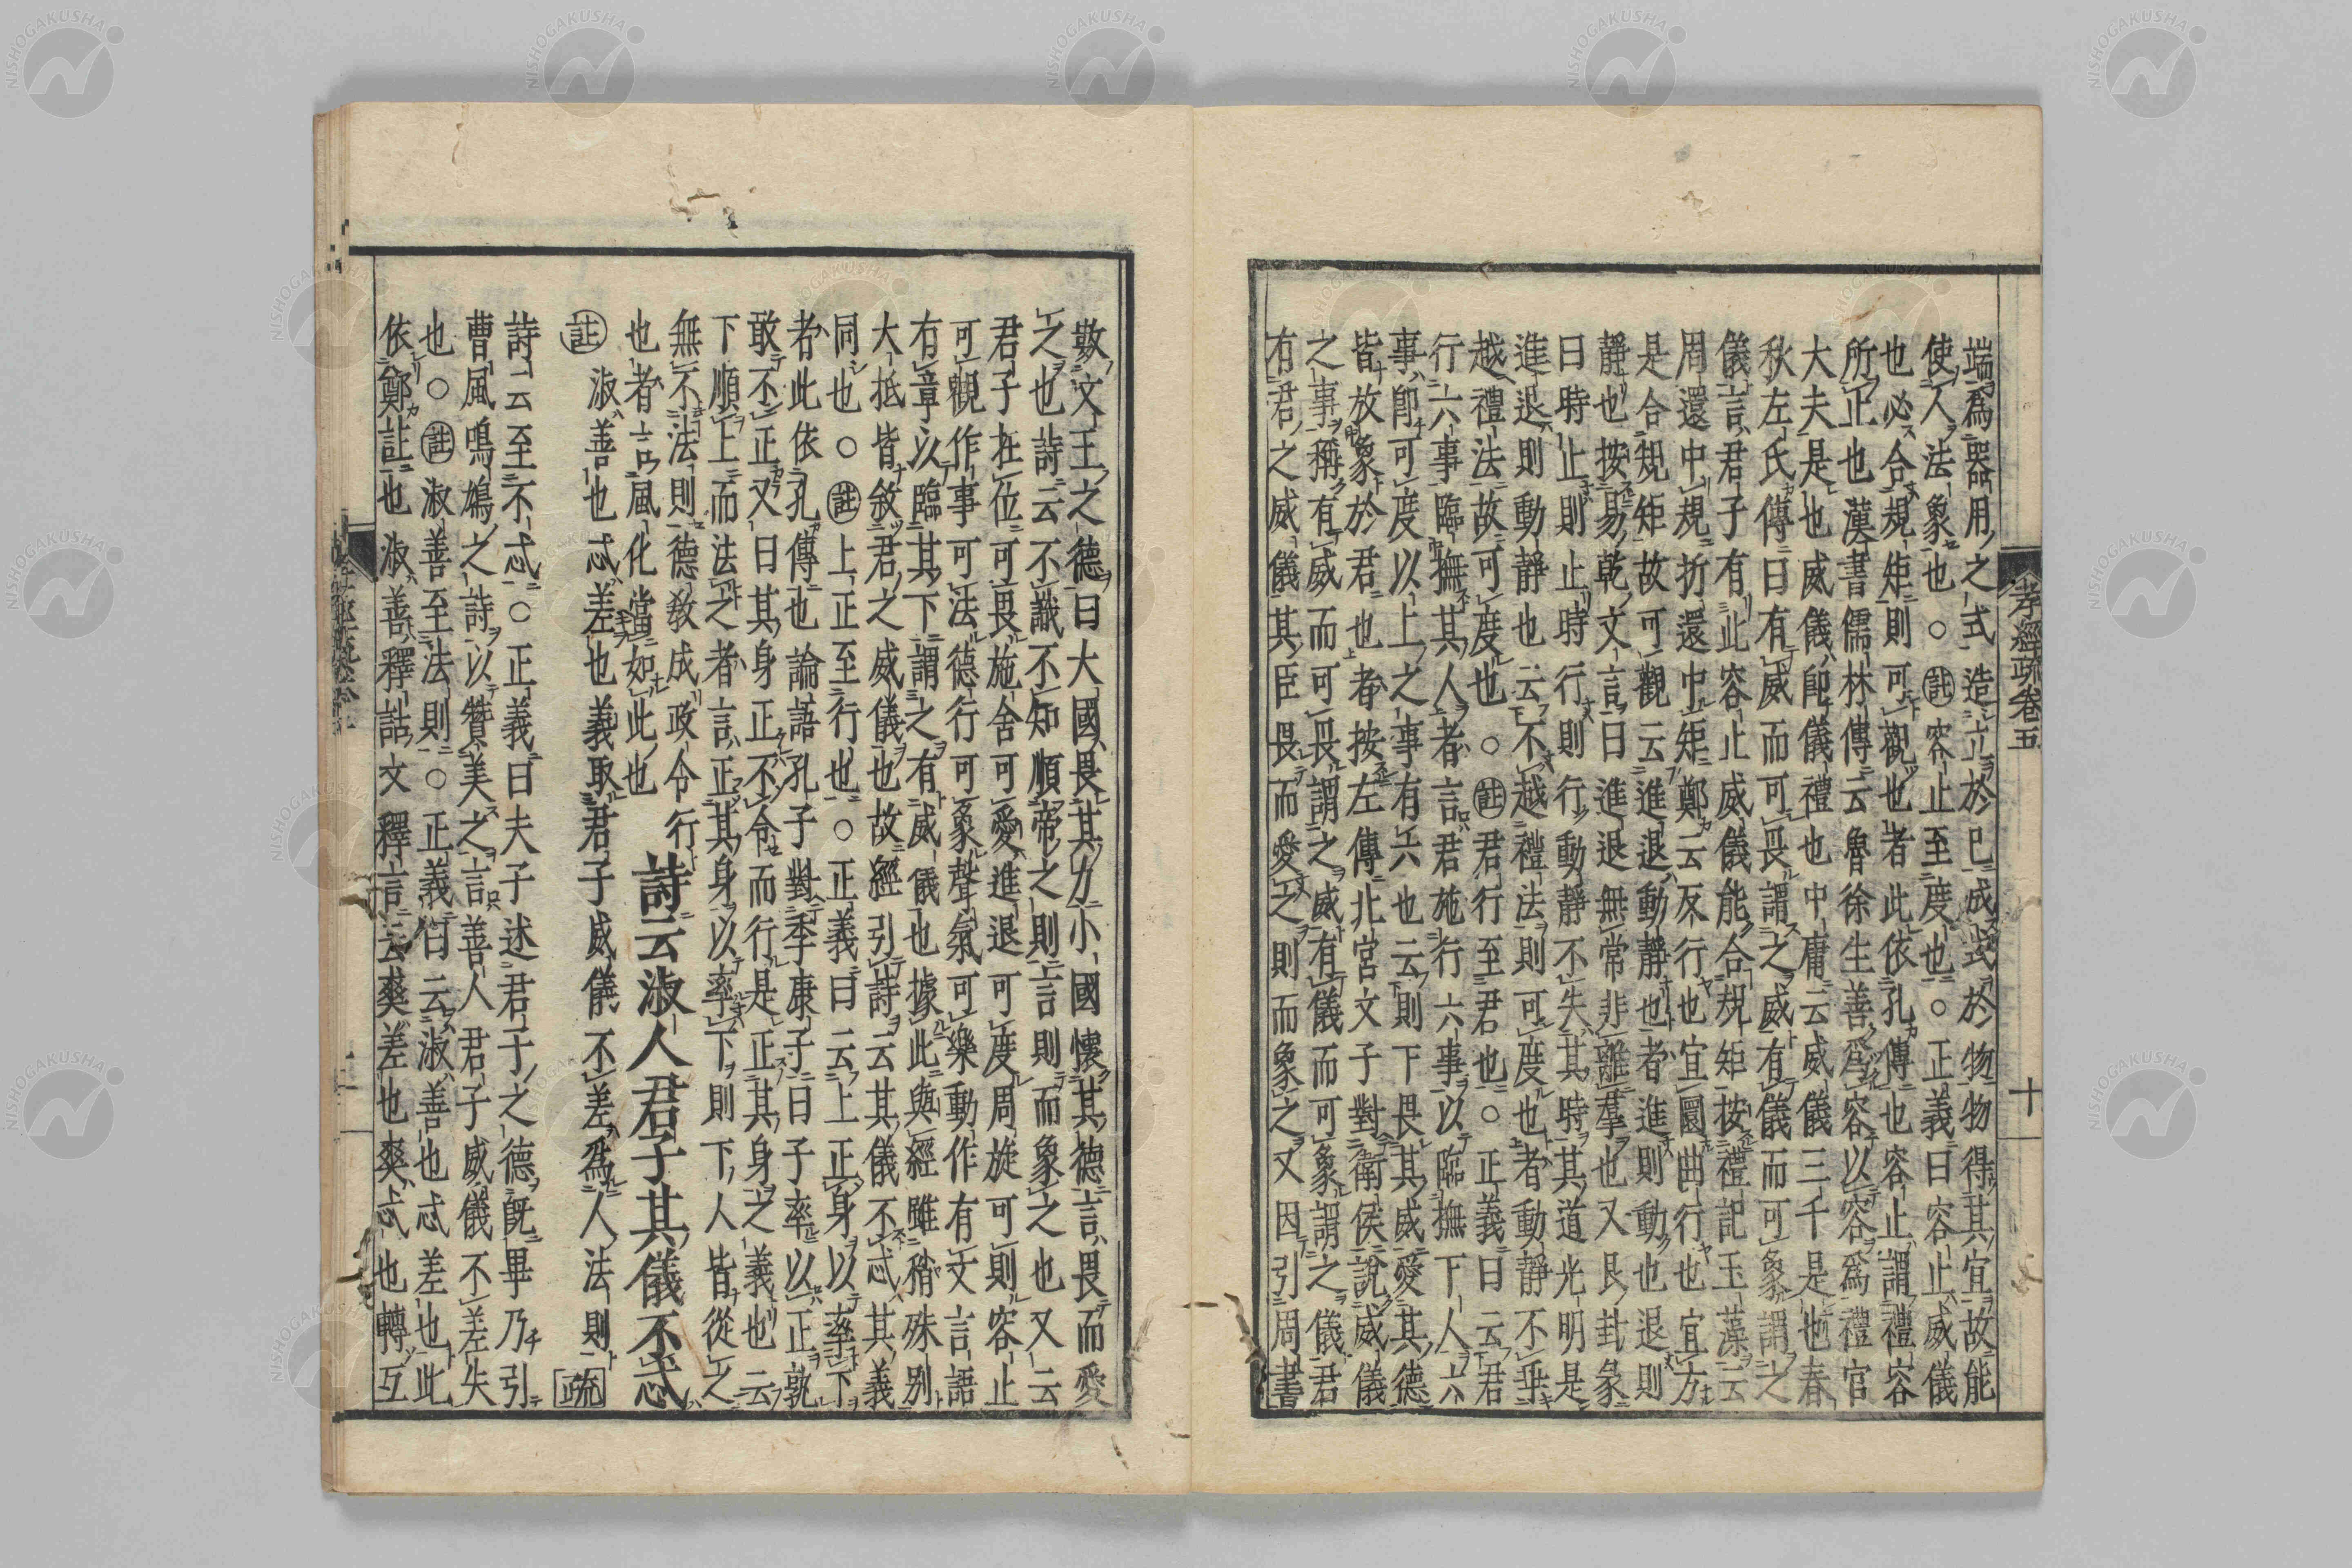 孝經疏卷五
十
端爲器用之式造立於己成式於物物得其宜故能
使人法象也○註容止至度也○正義曰容止威儀
也必合規矩則可觀也者此依孔傳也容止謂禮容
所正也漢書儒林傳云魯徐生善爲容以容爲禮官
大夫是也威儀即儀禮也中庸云威儀三千是也春
秋左氏傳曰有威而可畏謂之威有儀而可象謂之
儀言君子有此容止威儀能合規矩按禮記玉藻云
周還中規折還中矩鄭云反行也宜圜曲行也宜方
是合規矩故可觀云進退動靜也者進則動也退則
靜也按易乾文言曰進退無常非離羣也又艮卦彖
曰時止則止時行則行動靜不失其時其道光明是
進退則動靜也云不越禮法則可度也者動靜不乖
越禮法故可度也○註君行至君也○正義曰云君
行六事臨撫其人者言君施行六事以臨撫下人六
事即可度以上之事有六也云則下畏其威愛其德
皆放象於君也者按左傳北宮文子對衛侯說威儀
之事稱有威而可畏謂之威有儀而可象謂之儀君
有君之威儀其臣畏而愛之則而象之又因引周書
數文王之德曰大國畏其力小國懷其德言畏而愛
之也詩云不識不知順帝之則言則而象之也又云
君子在位可畏施舍可愛進退可度周旋可則容止
可觀作事可法德行可象聲氣可樂動作有文言語
有章以臨其下謂之有威儀也據此與經雖稍殊別
大抵皆敘君之威儀也故經引詩云其儀不忒其義
同也○註上正至行也○正義曰云上正身以率下
者此依孔傳也論語孔子對季康子曰子率以正孰
敢不正又曰其身正不令而行是正其身之義也云
下順上而法之者言正其身以率下則下人皆從之
無不法則德教成政令行
也者言風化當如此也 詩云淑人君子其儀不忒
註 淑善也忒差也義取君子威儀不差爲人法則 疏
詩云至不忒○正義曰夫子述君子之德既畢乃引
曹風鳴鳩之詩以贊美之言善人君子威儀不差失
也○註淑善至法則○正義曰云淑善也忒差也此
依鄭註也淑善釋詁文釋言云爽差也爽忒也轉互